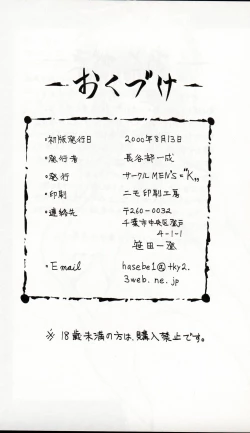 ーおくづけー
・初版発行日 2000年8月13日
・発行者 長谷部一成
・発行 サークルMEN'S="K„
・印刷 ニモ印刷工房
・連絡先 〒260-0032
千葉市中央区登戸
4-1-1
笹田一
・Email hasebe1@tky2.
3web.ne.jp
※ 18歳未満の方は、購入禁止です。